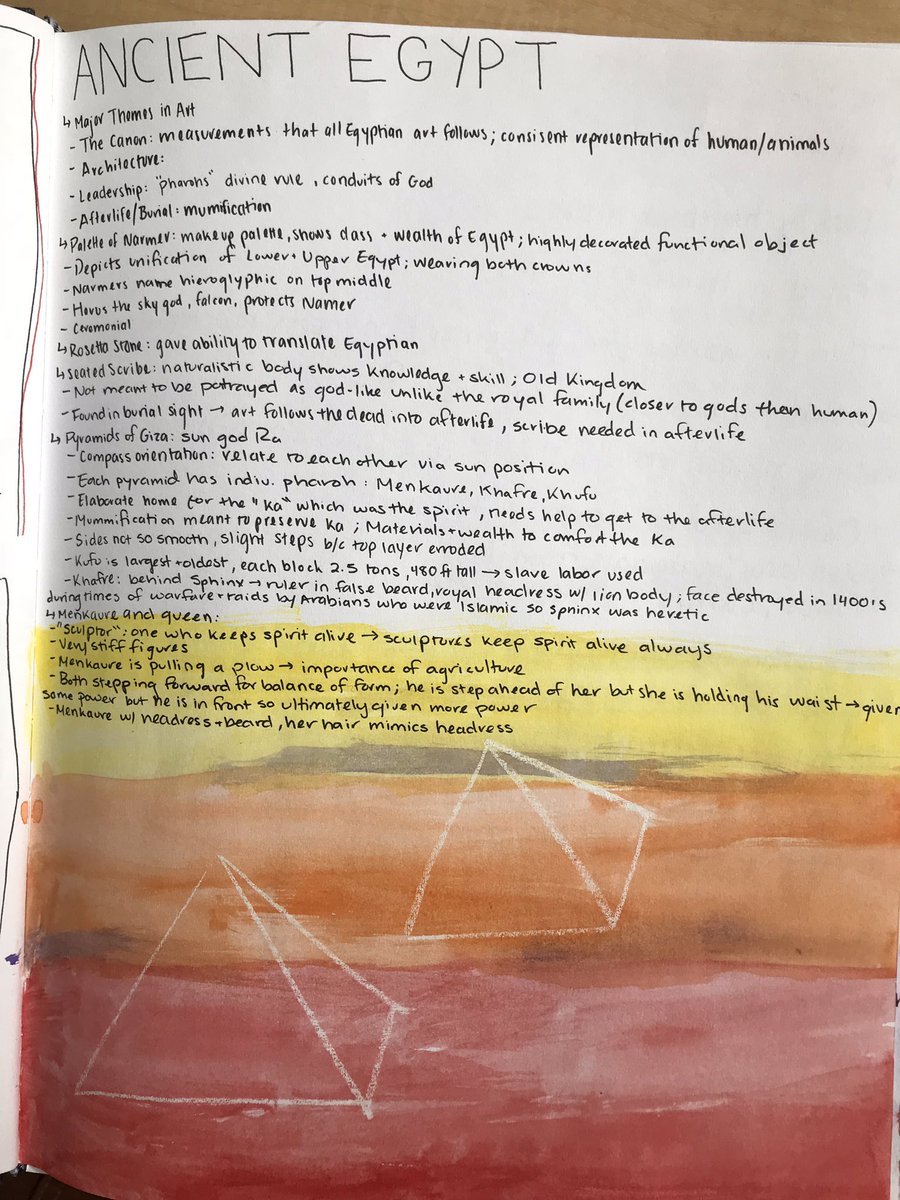 ANCIENT EGYPT
↳ Major Themes in Art
- The Canon: measurements that all Egyptian art follows; consisent representation of human/animals
- Architecture:
- Leadership: "pharohs" divine rule, conduits of God
- Afterlife/Burial: mumification
↳ Palette of Narmer: makeup palette, shows class + wealth of Egypt; highly decorated functional object
- Depicts unification of Lower + Upper Egypt; wearing both crowns
- Narmers name hieroglyphic on top middle
- Horus the sky god, falcon, protects Namer
- Ceremonial
↳ Rosetta Stone: gave ability to translate Egyptian
↳ Seated Scribe: naturalistic body shows knowledge + skill; Old Kingdom
- Not meant to be potrayed as god-like unlike the royal family (closer to gods then human)
- Found in burial sight → art follows the dead into afterlife, scribe needed in afterlife
↳ Pyramids of Giza: sun god Ra
- Compass orientation: relate to each other via sun position
- Each pyramid has indiv. pharoh: Menkaure, Khafre, Khufu
- Elaborate home for the "Ka" which was the spirit, needs help to get to the afterlife
- Mummification meant to preserve Ka; Materials + wealth to comfort the Ka
- Sides not so smooth, slight steps b/c top layer erroded
- Kufu is largest + oldest, each block 2.5 tons, 480 ft tall → slave labor used
- Khafre: behind Sphinx → ruler in false beard, royal headress w/ lion body; face destrayed in 1400's
during times of warfare + raids by Arabians who were Islamic so sphinx was heretic
↳ Menkaure and queen:
- "Sculptor": one who keeps spirit alive → sculptures keep spirit alive always
- Very stiff figures
- Menkaure is pulling a plow → importance of agriculture
- Both stepping forward for balance of form; he is step ahead of her but she is holding his waist → given
some power but he is in front so ultimately given more power
- Menkaure w/ headress + beard, her hair mimics headress